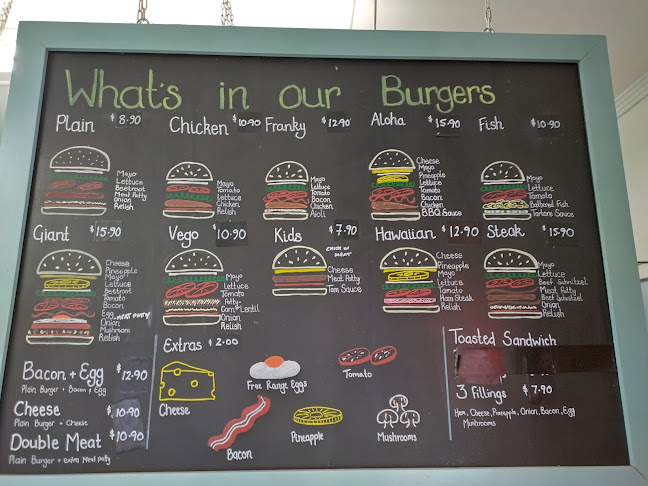 What's in our Burgers
Plain $8.90
Mayo
Lettuce
Beetroot
Meat Patty
Onion
Relish
Chicken $10.90
Mayo
Tomato
Lettuce
Chicken
Relish
Franky $12.90
Mayo
Lettuce
Tomato
Bacon
Chicken
Aioli
Aloha $15.90
Cheese
Mayo
Pineapple
Lettuce
Tomato
Bacon
Chicken
BBQ Sauce
Fish $10.90
Mayo
Lettuce
Tomato
Battered Fish
Tartare Sauce
Giant $15.90
Cheese
Pineapple
Mayo
Lettuce
Beetroot
Tomato
Bacon
Egg meat patty
Onion
Mushroom
Relish
Vego $10.90
Mayo
Lettuce
Tomato
Patty-
Corn + Lentil
Onion
Relish
Kids $7.90
Cheese
Meat Patty
Tom Sauce
Hawaiian $12.90
Cheese
Pineapple
Mayo
Lettuce
Tomato
Ham Steak
Relish
Steak $15.90
Mayo
Lettuce
Beef Schnitzel
Meat Patty
Beef Schnitzel
Onion
Relish
Bacon + Egg $12.90
Plain Burger + Bacon + Egg
Cheese $10.90
Plain Burger + Cheese
Double Meat $10.90
Plain Burger + extra Meat patty
Extras $2.00
Cheese
Free Range Eggs
Tomato
Bacon
Pineapple
Mushrooms
Toasted Sandwich
3 Fillings $7.90
Ham, Cheese, Pineapple, Onion, Bacon, Egg
Mushrooms